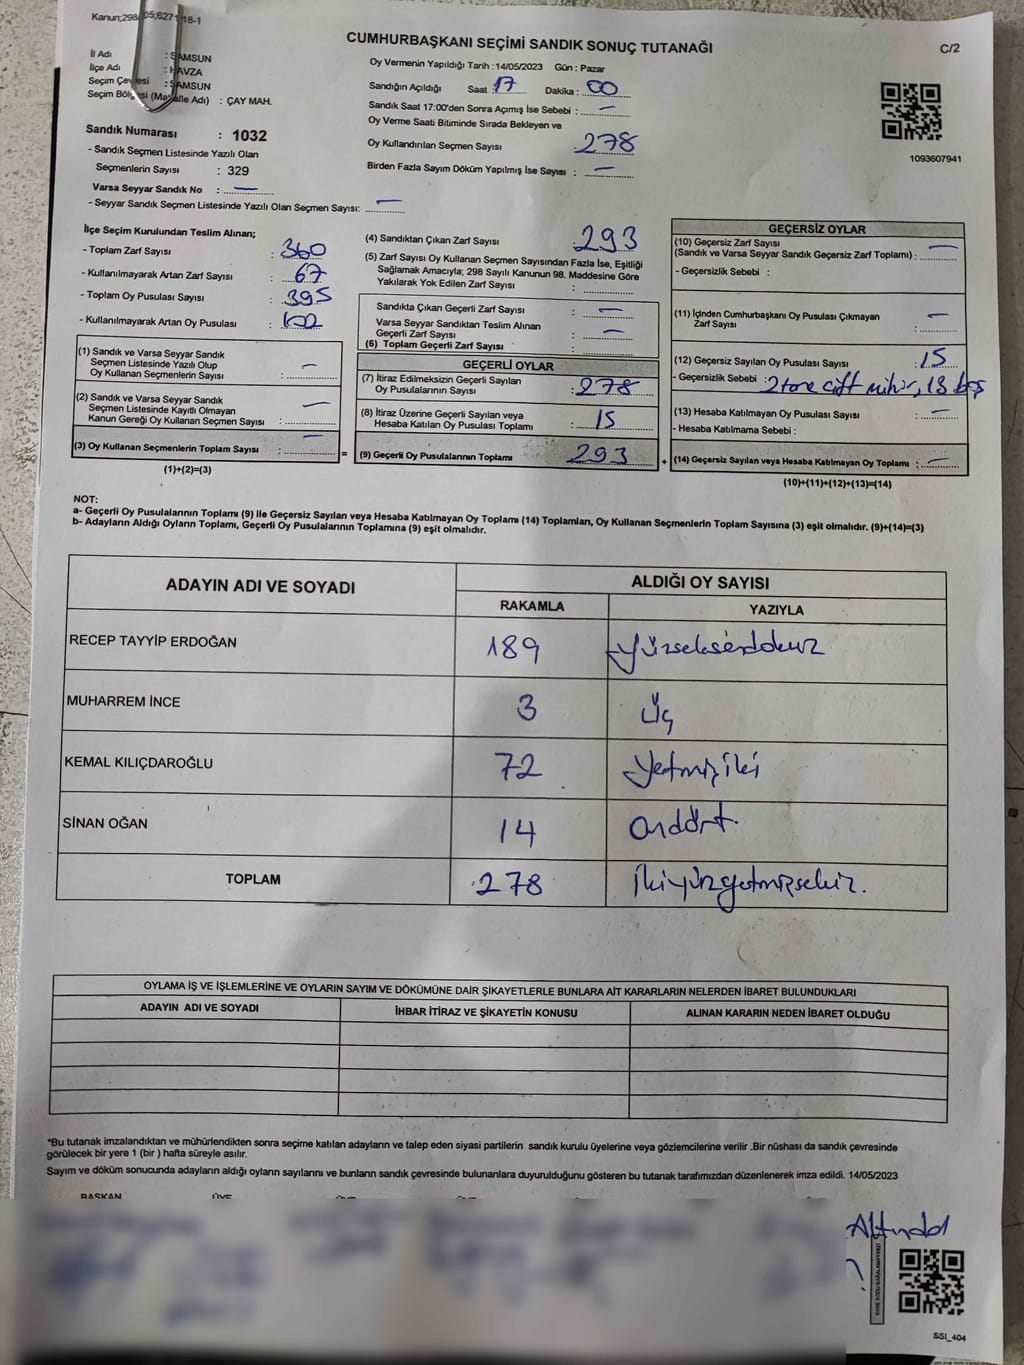 Kanun;298 05;627 118-1
CUMHURBAŞKANI SEÇİMİ SANDIK SONUÇ TUTANAĞI
C/2
İl Adı : SAMSUN
İlçe Adı : HAVZA
Seçim Çevresi : SAMSUN
Seçim Bölgesi (Mahalle Adı) : ÇAY MAH.
Sandık Numarası : 1032
- Sandık Seçmen Listesinde Yazılı Olan
Seçmenlerin Sayısı : 329
Varsa Seyyar Sandık No : —
- Seyyar Sandık Seçmen Listesinde Yazılı Olan Seçmen Sayısı: —
Oy Vermenin Yapıldığı Tarih :14/05/2023 Gün : Pazar
Sandığın Açıldığı Saat : 17 Dakika : 00
Sandık Saat 17:00'den Sonra Açımış İse Sebebi : —
Oy Verme Saati Bitiminde Sırada Bekleyen ve
Oy Kullandırılan Seçmen Sayısı 278
Birden Fazla Sayım Döküm Yapılmış İse Sayısı : —
1093607941
İlçe Seçim Kurulundan Teslim Alınan;
- Toplam Zarf Sayısı : 360
- Kullanılmayarak Artan Zarf Sayısı : 67
- Toplam Oy Pusulası Sayısı : 395
- Kullanılmayarak Artan Oy Pusulası : 102
(1) Sandık ve Varsa Seyyar Sandık
Seçmen Listesinde Yazılı Olup
Oy Kullanan Seçmenlerin Sayısı : —
(2) Sandık ve Varsa Seyyar Sandık
Seçmen Listesinde Kayıtlı Olmayan
Kanun Gereği Oy Kullanan Seçmen Sayısı : —
(3) Oy Kullanan Seçmenlerin Toplam Sayısı : — =
(1)+(2)=(3)
(4) Sandıktan Çıkan Zarf Sayısı : 293
(5) Zarf Sayısı Oy Kullanan Seçmen Sayısından Fazla İse, Eşitliği
Sağlamak Amacıyla; 298 Sayılı Kanunun 98. Maddesine Göre
Yakılarak Yok Edilen Zarf Sayısı :
Sandıkta Çıkan Geçerli Zarf Sayısı : —
Varsa Seyyar Sandıktan Teslim Alınan
Geçerli Zarf Sayısı : —
(6) Toplam Geçerli Zarf Sayısı :
GEÇERLİ OYLAR
(7) İtiraz Edilmeksizin Geçerli Sayılan
Oy Pusulalarının Sayısı : 278
(8) İtiraz Üzerine Geçerli Sayılan veya
Hesaba Katılan Oy Pusulası Toplamı : 15
(9) Geçerli Oy Pusulalarının Toplamı : 293 +
GEÇERSİZ OYLAR
(10) Geçersiz Zarf Sayısı —
(Sandık ve Varsa Seyyar Sandık Geçersiz Zarf Toplamı) :
- Geçersizlik Sebebi :
(11) İçinden Cumhurbaşkanı Oy Pusulası Çıkmayan
Zarf Sayısı : —
(12) Geçersiz Sayılan Oy Pusulası Sayısı : 15
- Geçersizlik Sebebi : 2 tane çift mühür, 13 boş
(13) Hesaba Katılmayan Oy Pusulası Sayısı : —
- Hesaba Katılmama Sebebi :
(14) Geçersiz Sayılan veya Hesaba Katılmayan Oy Toplamı : —
(10)+(11)+(12)+(13)=(14)
NOT:
a- Geçerli Oy Pusulalarının Toplamı (9) ile Geçersiz Sayılan veya Hesaba Katılmayan Oy Toplamı (14) Toplamları, Oy Kullanan Seçmenlerin Toplam Sayısına (3) eşit olmalıdır. (9)+(14)=(3)
b- Adayların Aldığı Oyların Toplamı, Geçerli Oy Pusulalarının Toplamına (9) eşit olmalıdır.
ADAYIN ADI VE SOYADI ALDIĞI OY SAYISI
RAKAMLA YAZIYLA
RECEP TAYYİP ERDOĞAN 189 yüzseksendokuz
MUHARREM İNCE 3 Üç
KEMAL KILIÇDAROĞLU 72 yetmişiki
SİNAN OĞAN 14 ondört.
TOPLAM 278 ikiyüzyetmişsekiz.
OYLAMA İŞ VE İŞLEMLERİNE VE OYLARIN SAYIM VE DÖKÜMÜNE DAİR ŞİKAYETLERLE BUNLARA AİT KARARLARIN NELERDEN İBARET BULUNDUKLARI
ADAYIN ADI VE SOYADI İHBAR İTİRAZ VE ŞİKAYETİN KONUSU ALINAN KARARIN NEDEN İBARET OLDUĞU
*Bu tutanak imzalandıktan ve mühürlendikten sonra seçime katılan adayların ve talep eden siyasi partilerin sandık kurulu üyelerine veya gözlemcilerine verilir .Bir nüshası da sandık çevresinde
görülecek bir yere 1 (bir ) hafta süreyle asılır.
Sayım ve döküm sonucunda adayların aldığı oyların sayılarını ve bunların sandık çevresinde bulunanlara duyurulduğunu gösteren bu tutanak tarafımızdan düzenlenerek imza edildi. 14/05/2023
BAŞKAN ÜYE
KARE KODU KARALAMAYINIZ!
SSI_404